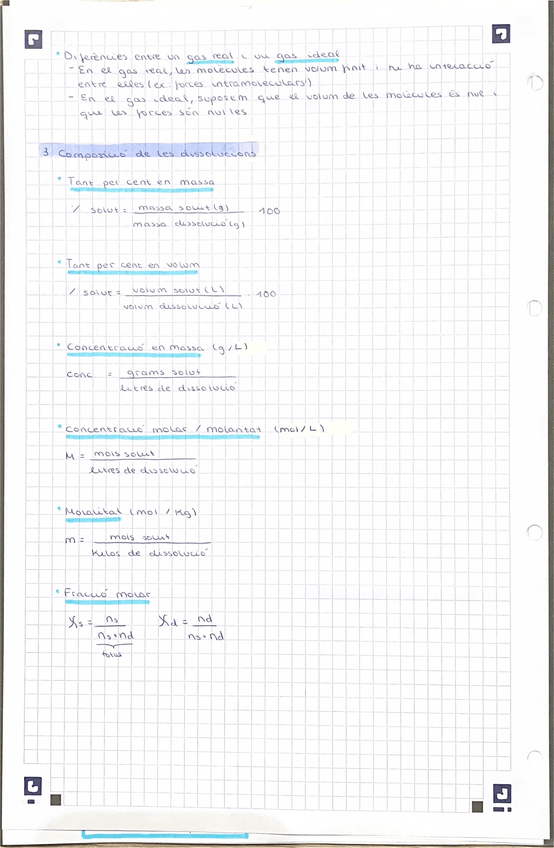 * Diferències entre un gas real i un gas ideal
- En el gas real, les molècules tenen volum finit i hi ha interacció
entre elles (ex forces intramoleculars!)
- En el gas ideal, suposem que el volum de les molècules és nul i
que les forces són nul·les
3 Composició de les dissolucions
* Tant per cent en massa
% solut = massa solut (g) / massa dissolució (g) · 100
* Tant per cent en volum
% solut = volum solut (L) / volum dissolució (L) · 100
* Concentració en massa (g/L)
conc = grams solut / litres de dissolució
* Concentració molar / molaritat (mol/L)
M = mols solut / litres de dissolució
* Molalitat (mol / Kg)
m = mols solut / kilos de dissolució
* Fracció molar
χs = ns / ns + nd χd = nd / ns + nd
totals